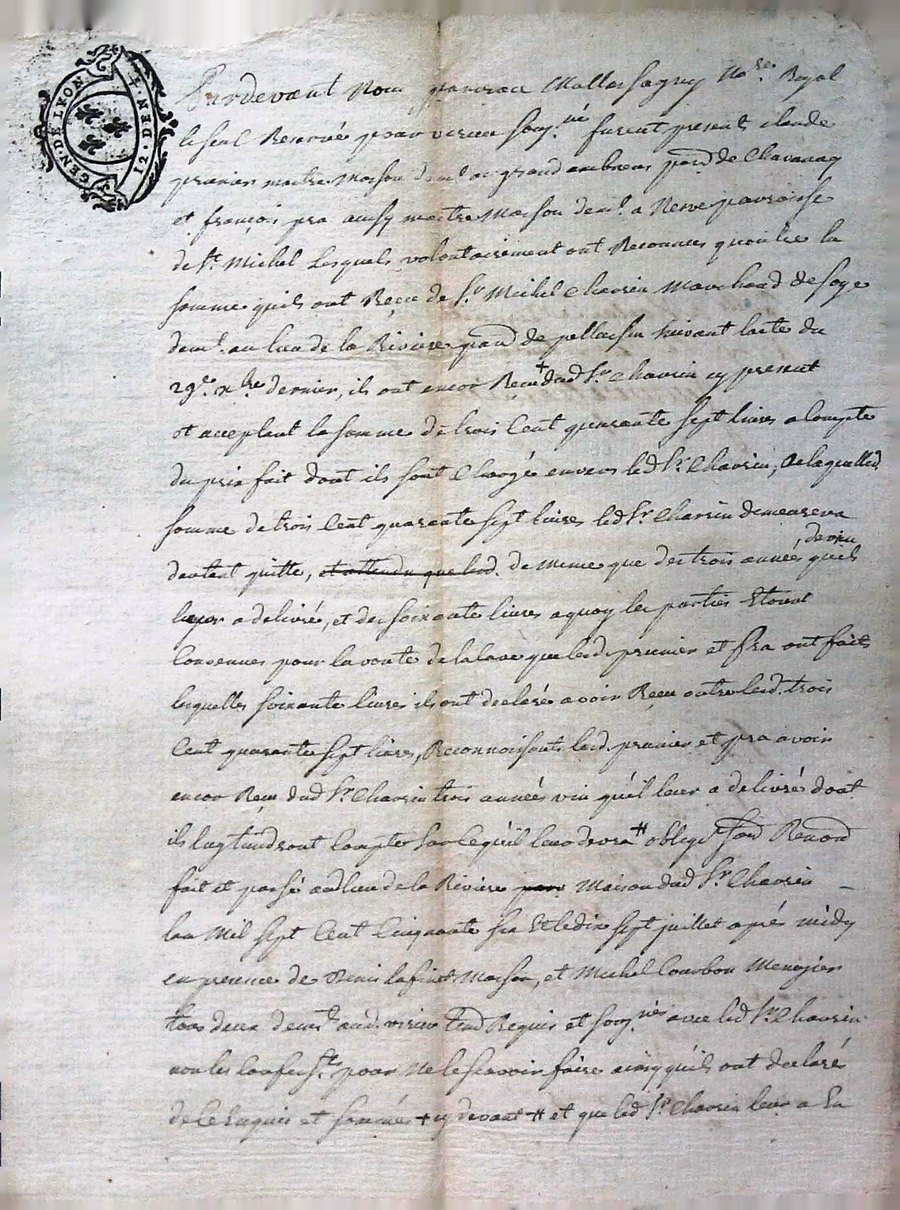 GEN. DE LYON
12. DEN.
Pardevant Nous Mattassagny No.re Royal
le seul Reservé pour virieu soug.né furent presents claude
prunier maitre Masson dem.t au grand ambuens parr. de Chavanay
et françois fra aussy maitre Masson dem.t a parroisse
de St. Michel Lesquels volontairement ont Reconnues qu'outre la
somme quils ont Reçue de Sr. Michel Chavrin Marchand de soye
dem.t au lieu de la Riviere parr. de pellussin suivant lacte du
29.e x.bre dernier, ils ont encor Reçu + dud Sr. Chavrin cy present
et acceptant la somme de trois Cent quarante sept livres a Compte
du prix fait dont ils sont Chargé envers led Sr. Chavrin, de laquelled.
somme de trois Cent quarante sept livres led Sr. Chavrin demeurera
de vin
dautant quitte, et attendu que led. de meme que des trois années quil
leur a delivré, et des soixante livres a quoy les parties Etoient
Convenues pour la voute de la Cave que led. prunier et fra ont faits
lesquelles soixante livres ils ont declaré avoir Reçu outre led. trois
Cent quarante sept livres, Reconnoissants led. prunier et fra avoir
encor Reçu dud Sr. Chavrin trois années vin quil leur a delivré dont
ils luy tiendront Compte sur Ce quil leur devra # oblige
fait et passé aud lieu de la Riviere Maison dud Sr. Chavrin
lan Mil sept Cent Cinquante six Et le dix sept juillet aprés midy
en presence de Denis lafont Masson, et Michel Courbon Menagier
tous deux dem.t aud. virieu Requis et soug.nés avec led Sr. Chavrin
non les pour Ne le scavoir faire ainsy quils ont declaré
de Ce Enquis et sommés + cy devant # et que led Sr. Chavrin leur a